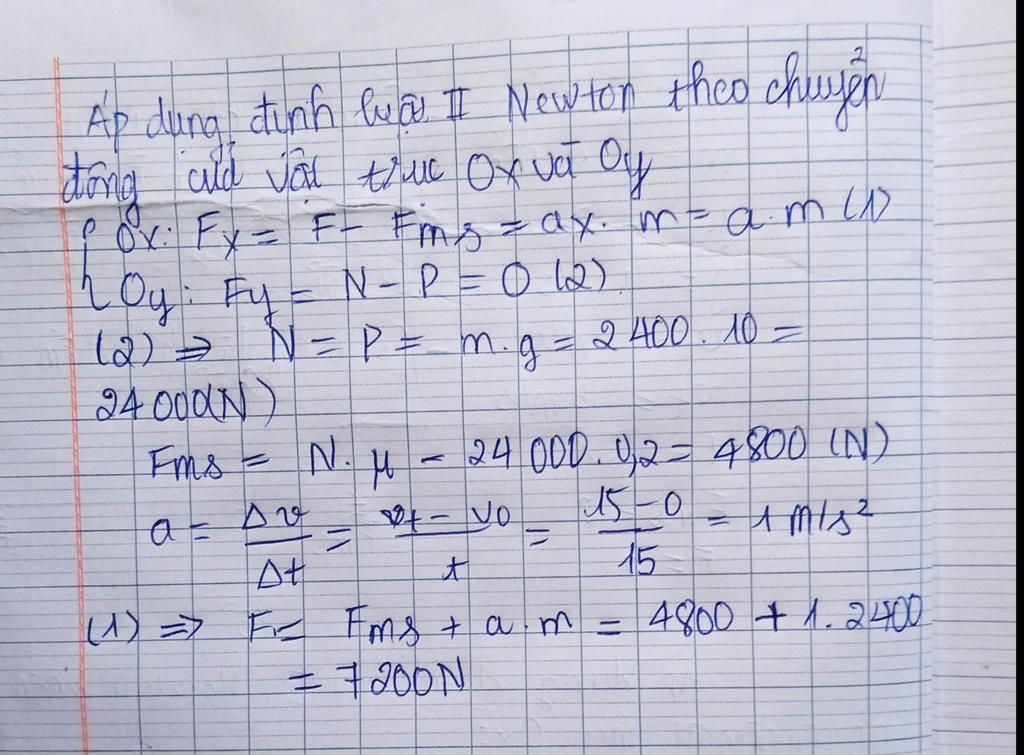 Áp dụng định luật II Newton theo chuyển
động của vật trục Ox và Oy
{ Ox: Fx = F - Fms = ax. m = a.m (1)
Oy: Fy = N - P = 0 (2)
(2) => N = P = m.g = 2400.10 =
24000(N)
Fms = N.μ = 24000.0,2 = 4800 (N)
a = Δv/Δt = vt - v0/t = 15-0/15 = 1 m/s²
(1) => F = Fms + a.m = 4800 + 1.2400
= 7200N